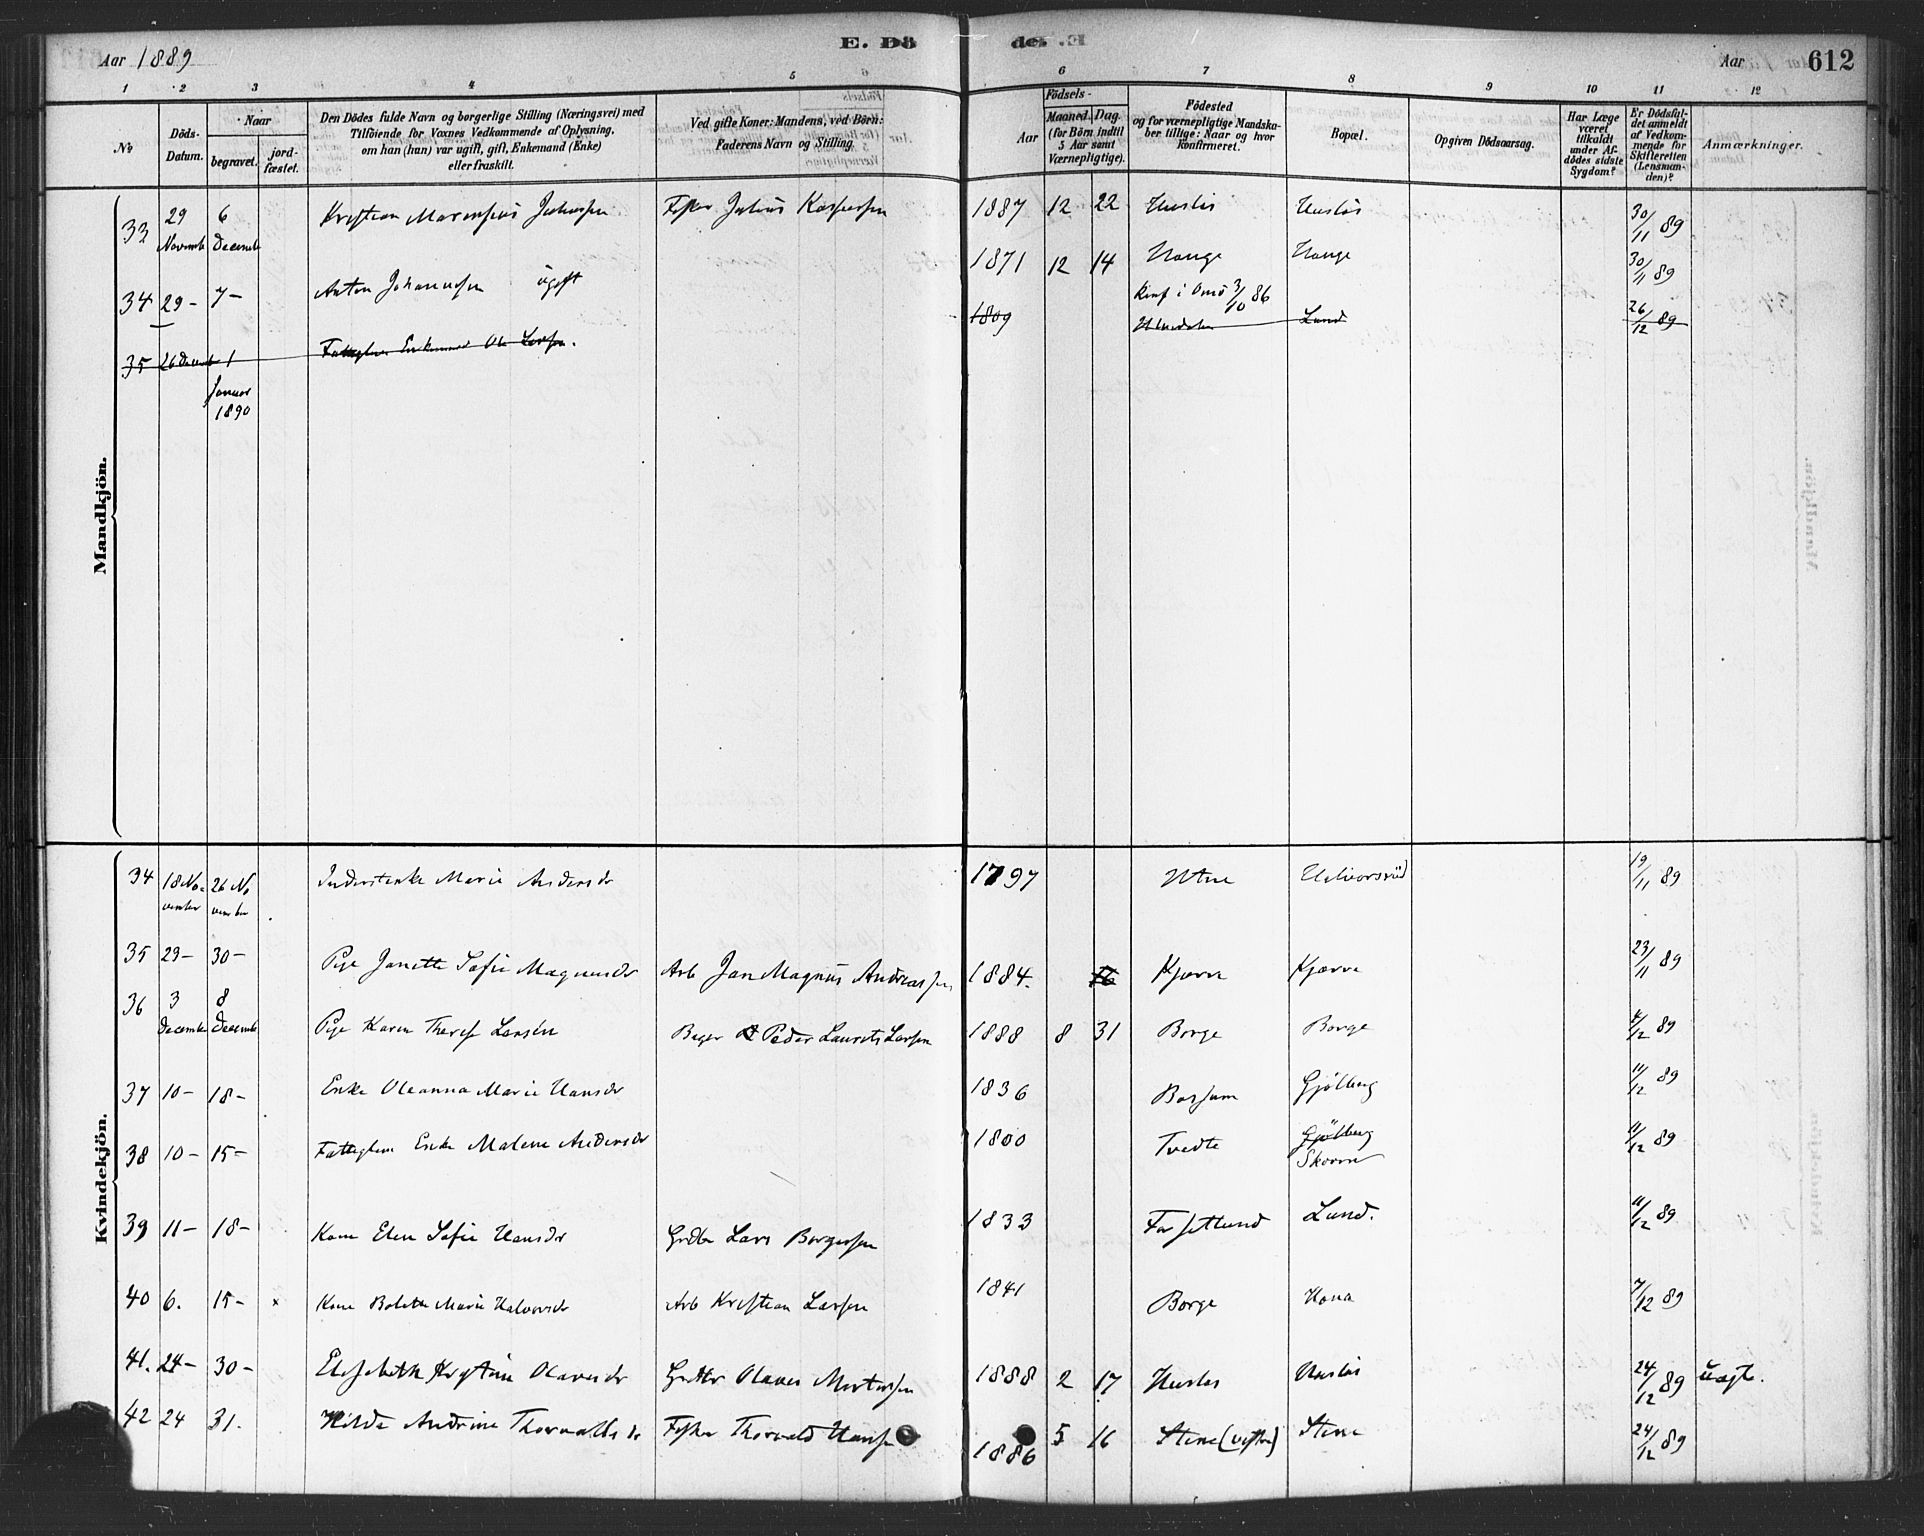 Aar 1889
E. Dö
de. E
Aar
612
1 2 3 4 5 6 7 8 9 10 11 12
No
Döds-Datum.
Naar
begravet.
jord-fæstet.
Den Dödes fulde Navn og borgerlige Stilling (Næringsvei) med
Tilföiende for Voxnes Vedkommende af Oplysning,
om han (hun) var ugift, gift, Enkemand (Enke)
eller fraskilt.
Ved gifte Koner: Mandens, ved Börn:
Faderens Navn og Stilling.
Födsels-
Aar
Maaned. Dag.
(for Börn indtil
5 Aar samt
Værnepligtige).
Födested
og for værnepligtige Mandska-
ber tillige: Naar og hvor
Konfirmeret.
Bopæl.
Opgiven Dödsaarsag.
Har Læge
været
tilkaldt
under Af-
dödes sidste
Sygdom?
Er Dödsfal-
det anmeldt
af Vedkom-
mende for
Skifteretten
(Lensman-
den)?
Anmærkninger.
Mandkjön.
33 29 November 6 December Kristian Marensius Juliussen Fisker Julius Kaspersen 1887 12 22 Huslös Huslös 30/11 89
34 29 – 7 – Anton Johannesen ugift 1871 12 14 Hauge Hauge 30/11 89
Konf i Onsö 3/10 86
35 26 Decemb 1 Januar 1890 Fattiglem Enkemand Ole Larsen. 1809 Lund 26/12 89
Kvindekjön.
34 18 November 26 November Inderstenke Marie Andersdr 1797 Utne Halvorsröd 19/11 89
35 23 – 30 – Pige Janette Sofie Magnusdr Arb Jan Magnus Andreassen 1884. Kjærre Kjærre 23/11 89
36 3 December 8 December Pige Karen Therese Larsen Bager Peder Laurits Larsen 1888 8 31 Borge Borge 4/12 89
37 10 – 18 – Enke Oleanna Marie Hansdr 1836 Borsum Gjölberg 11/12 89
38 10 – 15 – Fattiglem Enke Malene Andersdr 1800 Tvedte Gjölberg
Skovne 11/12 89
39 11 – 18 – Kone Elen Sofie Hansdr Grdbr Lars Borgersen 1833 Forsetlund Lund. 11/12 89
40 6. 15 – x Kone Bolette Marie Halvorsdr Arb Kristian Larsen 1841 Borge Hona 7/12 89
41. 24 – 30 – Elisabeth Kristine Olavesdr Grdbr Olaves Mortensen 1888 2 17 Huslös Huslös 24/12 89 uægte.
42 24 31. Hilda Andrine Thorvaldsdr Fisker Thorvald Hansen 1886 5 16 Stene (vestre) Stene 24/12 89